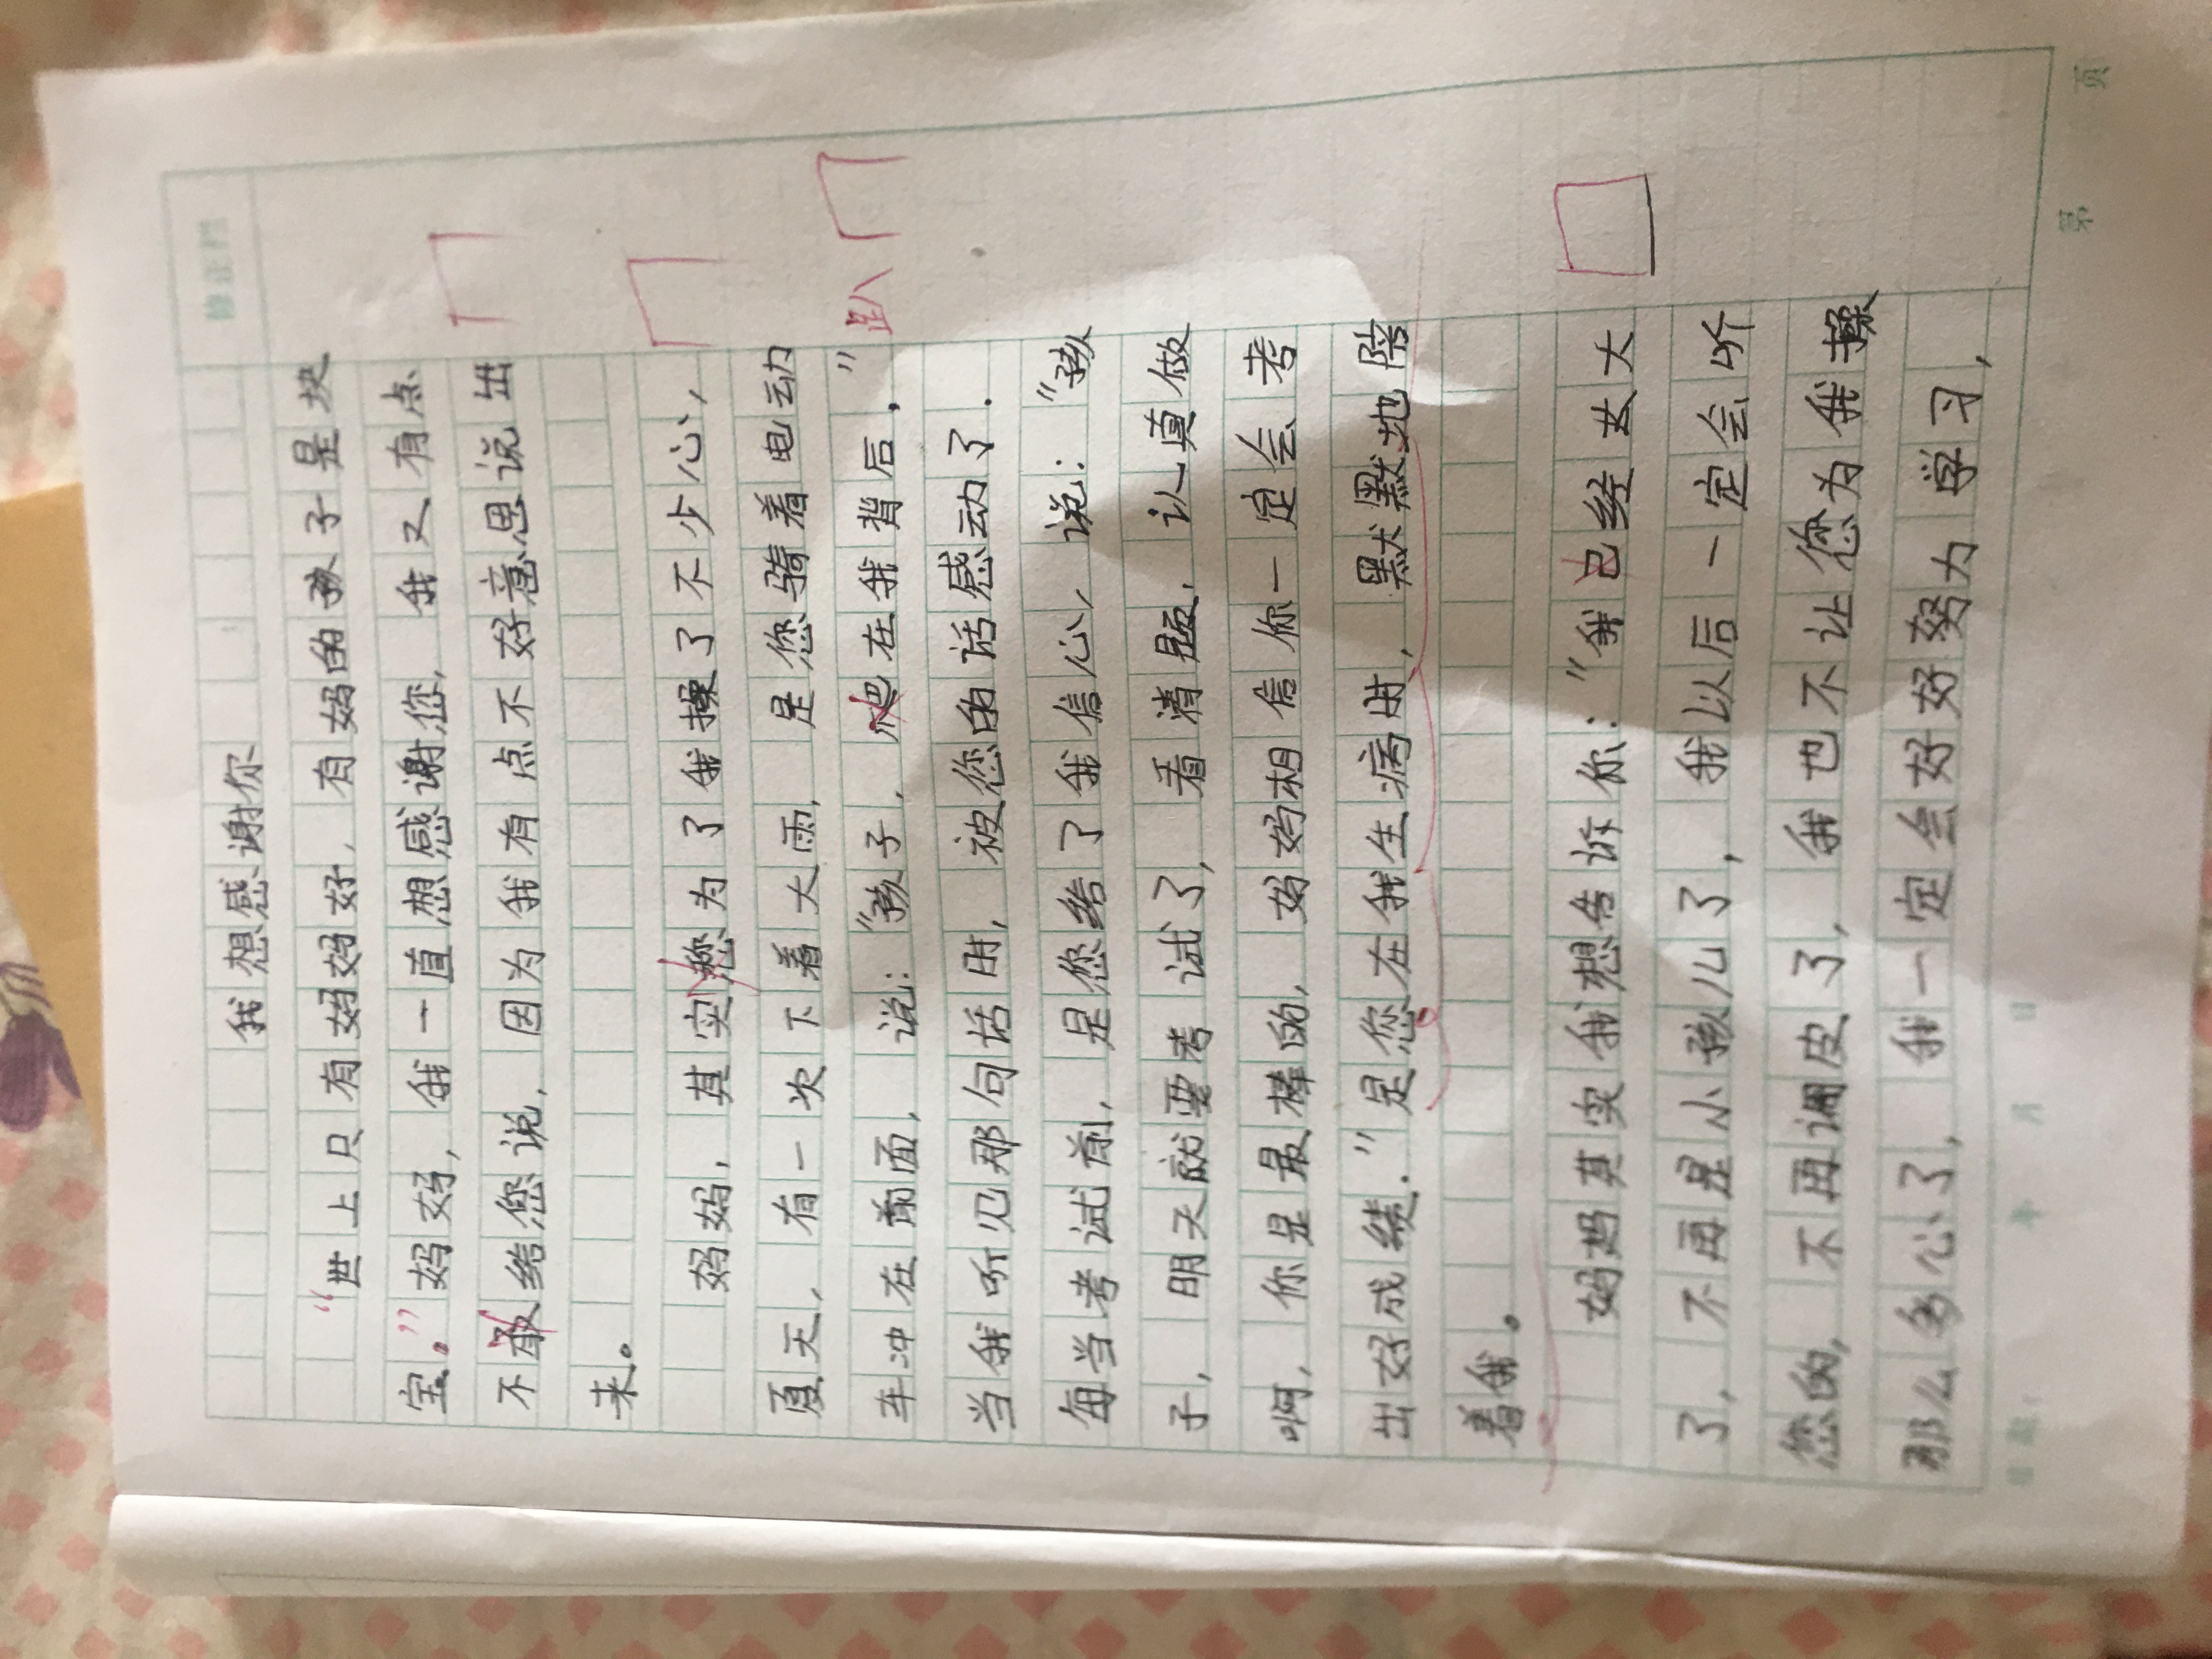 修正栏
我想感谢你
“世上只有妈妈好，有妈的孩子是块
宝。”妈妈，我一直想感谢您，我又有点
不敢给您说，因为我有点不好意思说出
来。
妈妈，其实您为了我操了不少心，
夏天，有一次下着大雨，是您骑着电动
车冲在前面，说：“孩子，爬在我背后，”
趴
当我听见那句话时，被您的话感动了．
每当考试前，是您给了我信心，说：“孩
子，明天就要考试了，看清题，认真做
啊，你是最棒的，妈妈相信你一定会考
出好成绩．”是您在我生病时，默默地陪
着我。
妈妈其实我想告诉你：“我已经长大
了，不再是小孩儿了，我以后一定会听
您的，不再调皮了，我也不让您为我操
那么多心了，我一定会好好努力学习，
年 月 日
第 页